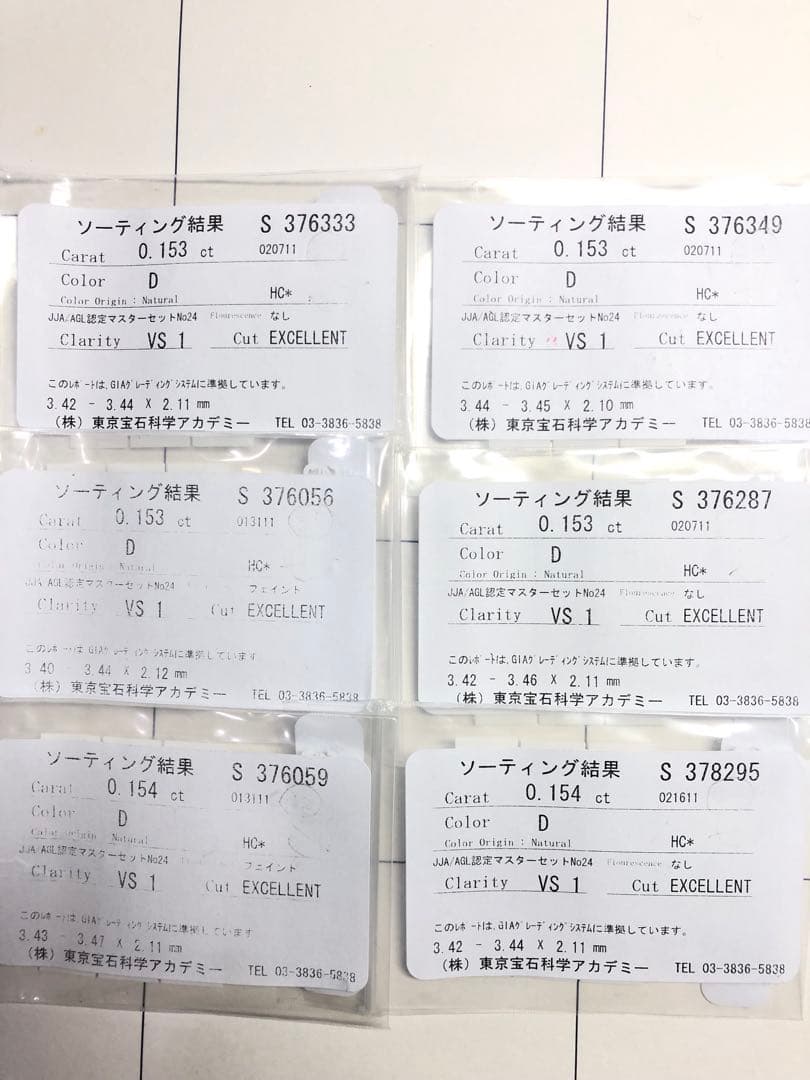 ソーティング結果 S 376333
Carat 0.153 ct 020711
Color D
Color Origin : Natural HC*
JJA/AGL認定マスターセットNo24 Flourescence なし
Clarity VS 1 Cut EXCELLENT
このﾚﾎﾟｰﾄは、GIAｸﾞﾚｰﾃﾞｨﾝｸﾞｼｽﾃﾑに準拠しています。
3.42 - 3.44 X 2.11 mm
(株) 東京宝石科学アカデミー TEL 03-3836-5838
ソーティング結果 S 376349
Carat 0.153 ct 020711
Color D
Color Origin : Natural HC*
JJA/AGL認定マスターセットNo24 Flourescence なし
Clarity VS 1 Cut EXCELLENT
このﾚﾎﾟｰﾄは、GIAｸﾞﾚｰﾃﾞｨﾝｸﾞｼｽﾃﾑに準拠しています。
3.44 - 3.45 X 2.10 mm
(株) 東京宝石科学アカデミー TEL 03-3836-5838
ソーティング結果 S 376056
Carat 0.153 ct 013111
Color D
Color Origin : Natural HC*
JJA/AGL認定マスターセットNo24 フェイント
Clarity VS 1 Cut EXCELLENT
このﾚﾎﾟｰﾄは、GIAｸﾞﾚｰﾃﾞｨﾝｸﾞｼｽﾃﾑに準拠しています
3.40 - 3.44 X 2.12 mm
(株) 東京宝石科学アカデミー TEL 03-3836-5838
ソーティング結果 S 376287
Carat 0.153 ct 020711
Color D
Color Origin : Natural HC*
JJA/AGL認定マスターセットNo24 Flourescence なし
Clarity VS 1 Cut EXCELLENT
このﾚﾎﾟｰﾄは、GIAｸﾞﾚｰﾃﾞｨﾝｸﾞｼｽﾃﾑに準拠しています。
3.42 - 3.46 X 2.11 mm
(株) 東京宝石科学アカデミー TEL 03-3836-5838
ソーティング結果 S 376059
Carat 0.154 ct 013111
Color D
Color Origin Natural HC*
JJA/AGL認定マスターセットNo24 フェイント
Clarity VS 1 Cut EXCELLENT
このﾚﾎﾟｰﾄは、GIAｸﾞﾚｰﾃﾞｨﾝｸﾞｼｽﾃﾑに準拠しています
3.43 - 3.47 X 2.11 mm
(株) 東京宝石科学アカデミー TEL 03-3836-5838
ソーティング結果 S 378295
Carat 0.154 ct 021611
Color D
Color Origin : Natural HC*
JJA/AGL認定マスターセットNo24 Flourescence なし
Clarity VS 1 Cut EXCELLENT
このﾚﾎﾟｰﾄは、GIAｸﾞﾚｰﾃﾞｨﾝｸﾞｼｽﾃﾑに準拠しています。
3.42 - 3.44 X 2.11 mm
(株) 東京宝石科学アカデミー TEL 03-3836-5838